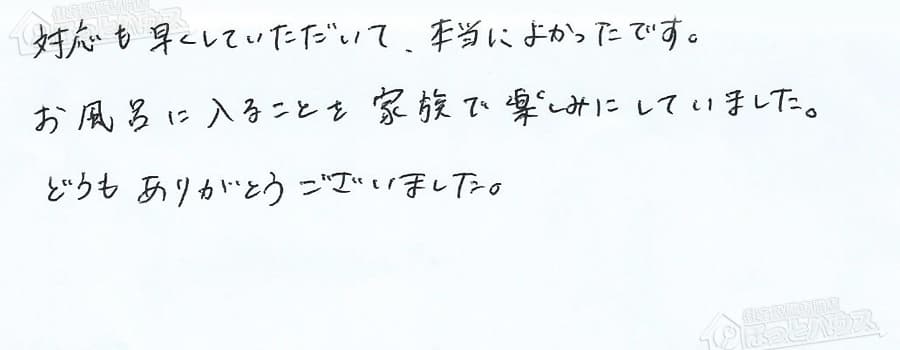 対応も早くしていただいて、本当によかったです。
お風呂に入ることを家族で楽しみにしていました。
どうもありがとうございました。
ほっとハウス